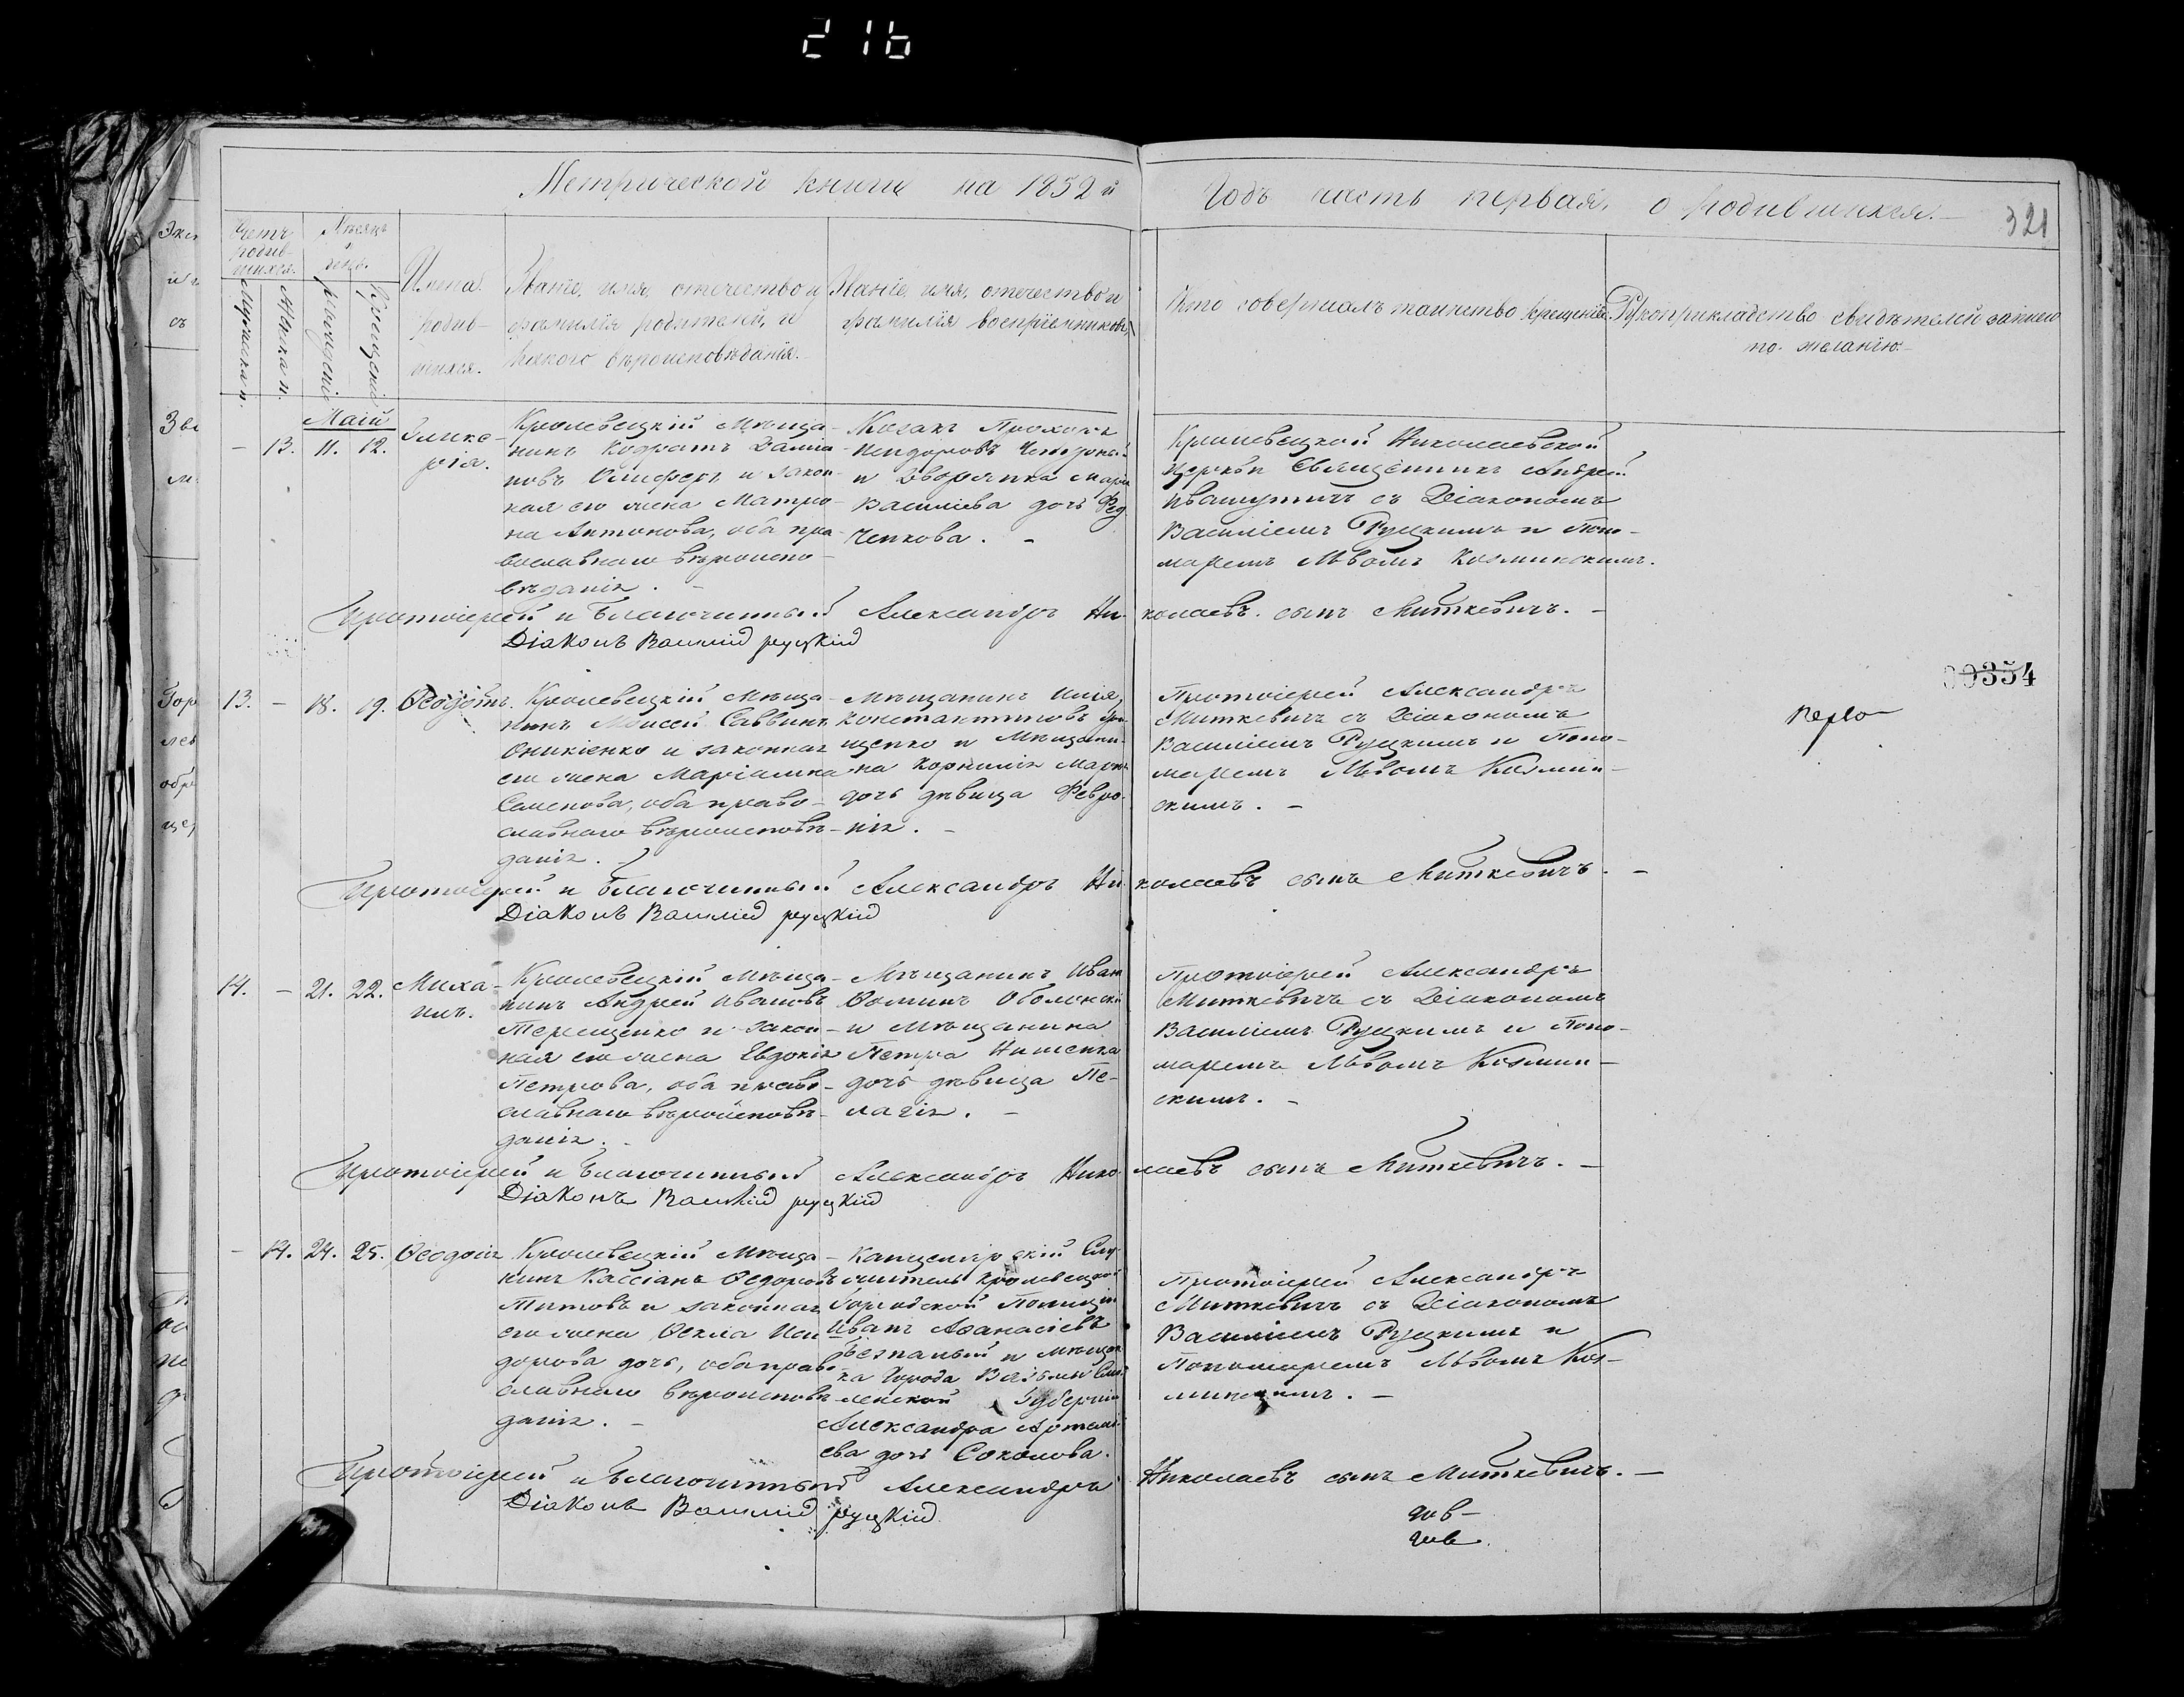 216
Метрической книги на 1852й Годъ часть первая, о родившихся.—
321
Счетъ родив-шихся.
Мужеска п.
Женска п.
Мѣсяцъ и день.
рожденія
Крещенія
Имена родив-
шихся.
Званіе, имя, отечество и
фамилія родителей, и
какого вѣроисповѣданія.
Званіе, имя, отечество и
фамилія воспріемниковъ
Кто совершалъ таинство крещенія
Рукоприкладство свидѣтелей записи
по желанію.—
Маій
— 13. 11. 12. Глике-
рія.
Кролевецкій Мѣща-
нинъ Кодратъ Даміа-
новъ и закон-
ная его жена Матро-
на Антонова, оба пра-
вославнаго вѣроиспо-
вѣданія. —
Козакъ Прохоръ
и дворянка Марія
Василіева дочь Фед
ченкова. —
Кролевецкой Николаевской
Церкви Священникъ Андрей
Ивашутичъ съ Діакономъ
Василіемъ Руцкимъ и Поно-
маремъ Львомъ Козминскимъ.
Протоіерей и Благочинный Александръ Николаевъ сынъ Миткевичъ. —
Діаконъ Василій руцкій
00354
13. — 18. 19. Ѳеодотъ.
Кролевецкій Мѣща-
нинъ Моисей Саввинъ
Оникіенко и законная
его жена Маріамна
Семенова, оба право-
славнаго вѣроисповѣ-
данія. —
Мѣщанинъ Илія
Константиновъ
щенко и Мѣщани-
на Корнилія Марк
дочь дѣвица Февро-
нія. —
Протоіерей Александръ
Миткевичъ съ Діакономъ
Василіемъ Руцкимъ и Поно-
маремъ Львомъ Козмин-
скимъ. —
Протоіерей и Благочинный Александръ Николаевъ сынъ Миткевичъ. —
Діаконъ Василій руцкій
14. — 21. 22. Миха-
илъ.
Кролевецкій Мѣща-
нинъ Андрей Ивановъ
Терещенко и закон-
ная его жена Евдокія
Петрова, оба право-
славнаго вѣроисповѣ-
данія. —
Мѣщанинъ Иван
Ѳоминъ Оболонскій
и Мѣщанина
Петра Нишенка
дочь дѣвица Пе-
лагія. —
Протоіерей Александръ
Миткевичъ съ Діакономъ
Василіемъ Руцкимъ и Поно-
маремъ Львомъ Козмин-
скимъ. —
Протоіерей и Благочинный Александръ Николаевъ сынъ Миткевичъ. —
Діаконъ Василій руцкій
— 14. 24. 25. Ѳеодосія
Кролевецкій Мѣща-
нинъ Кассіанъ Ѳедоровъ
Титовъ и законная
его жена Ѳекла Иси-
дорова дочь, оба право-
славнаго вѣроисповѣ-
данія. —
Канцелярскій Слу-
житель Кролевецкой
Городской Полиціи
Иванъ Аѳанасіевъ
Безпалый и мѣщан
ка Города Вязьмы Смо
ленской Губерніи
Александра Артемі-
ева дочь Соколова.
Протоіерей Александръ
Миткевичъ съ Діакономъ
Василіемъ Руцкимъ и
Пономаремъ Львомъ Коз-
минскимъ. —
Протоіерей и Благочинный Александръ Николаевъ сынъ Миткевичъ. —
Діаконъ Василій руцкій